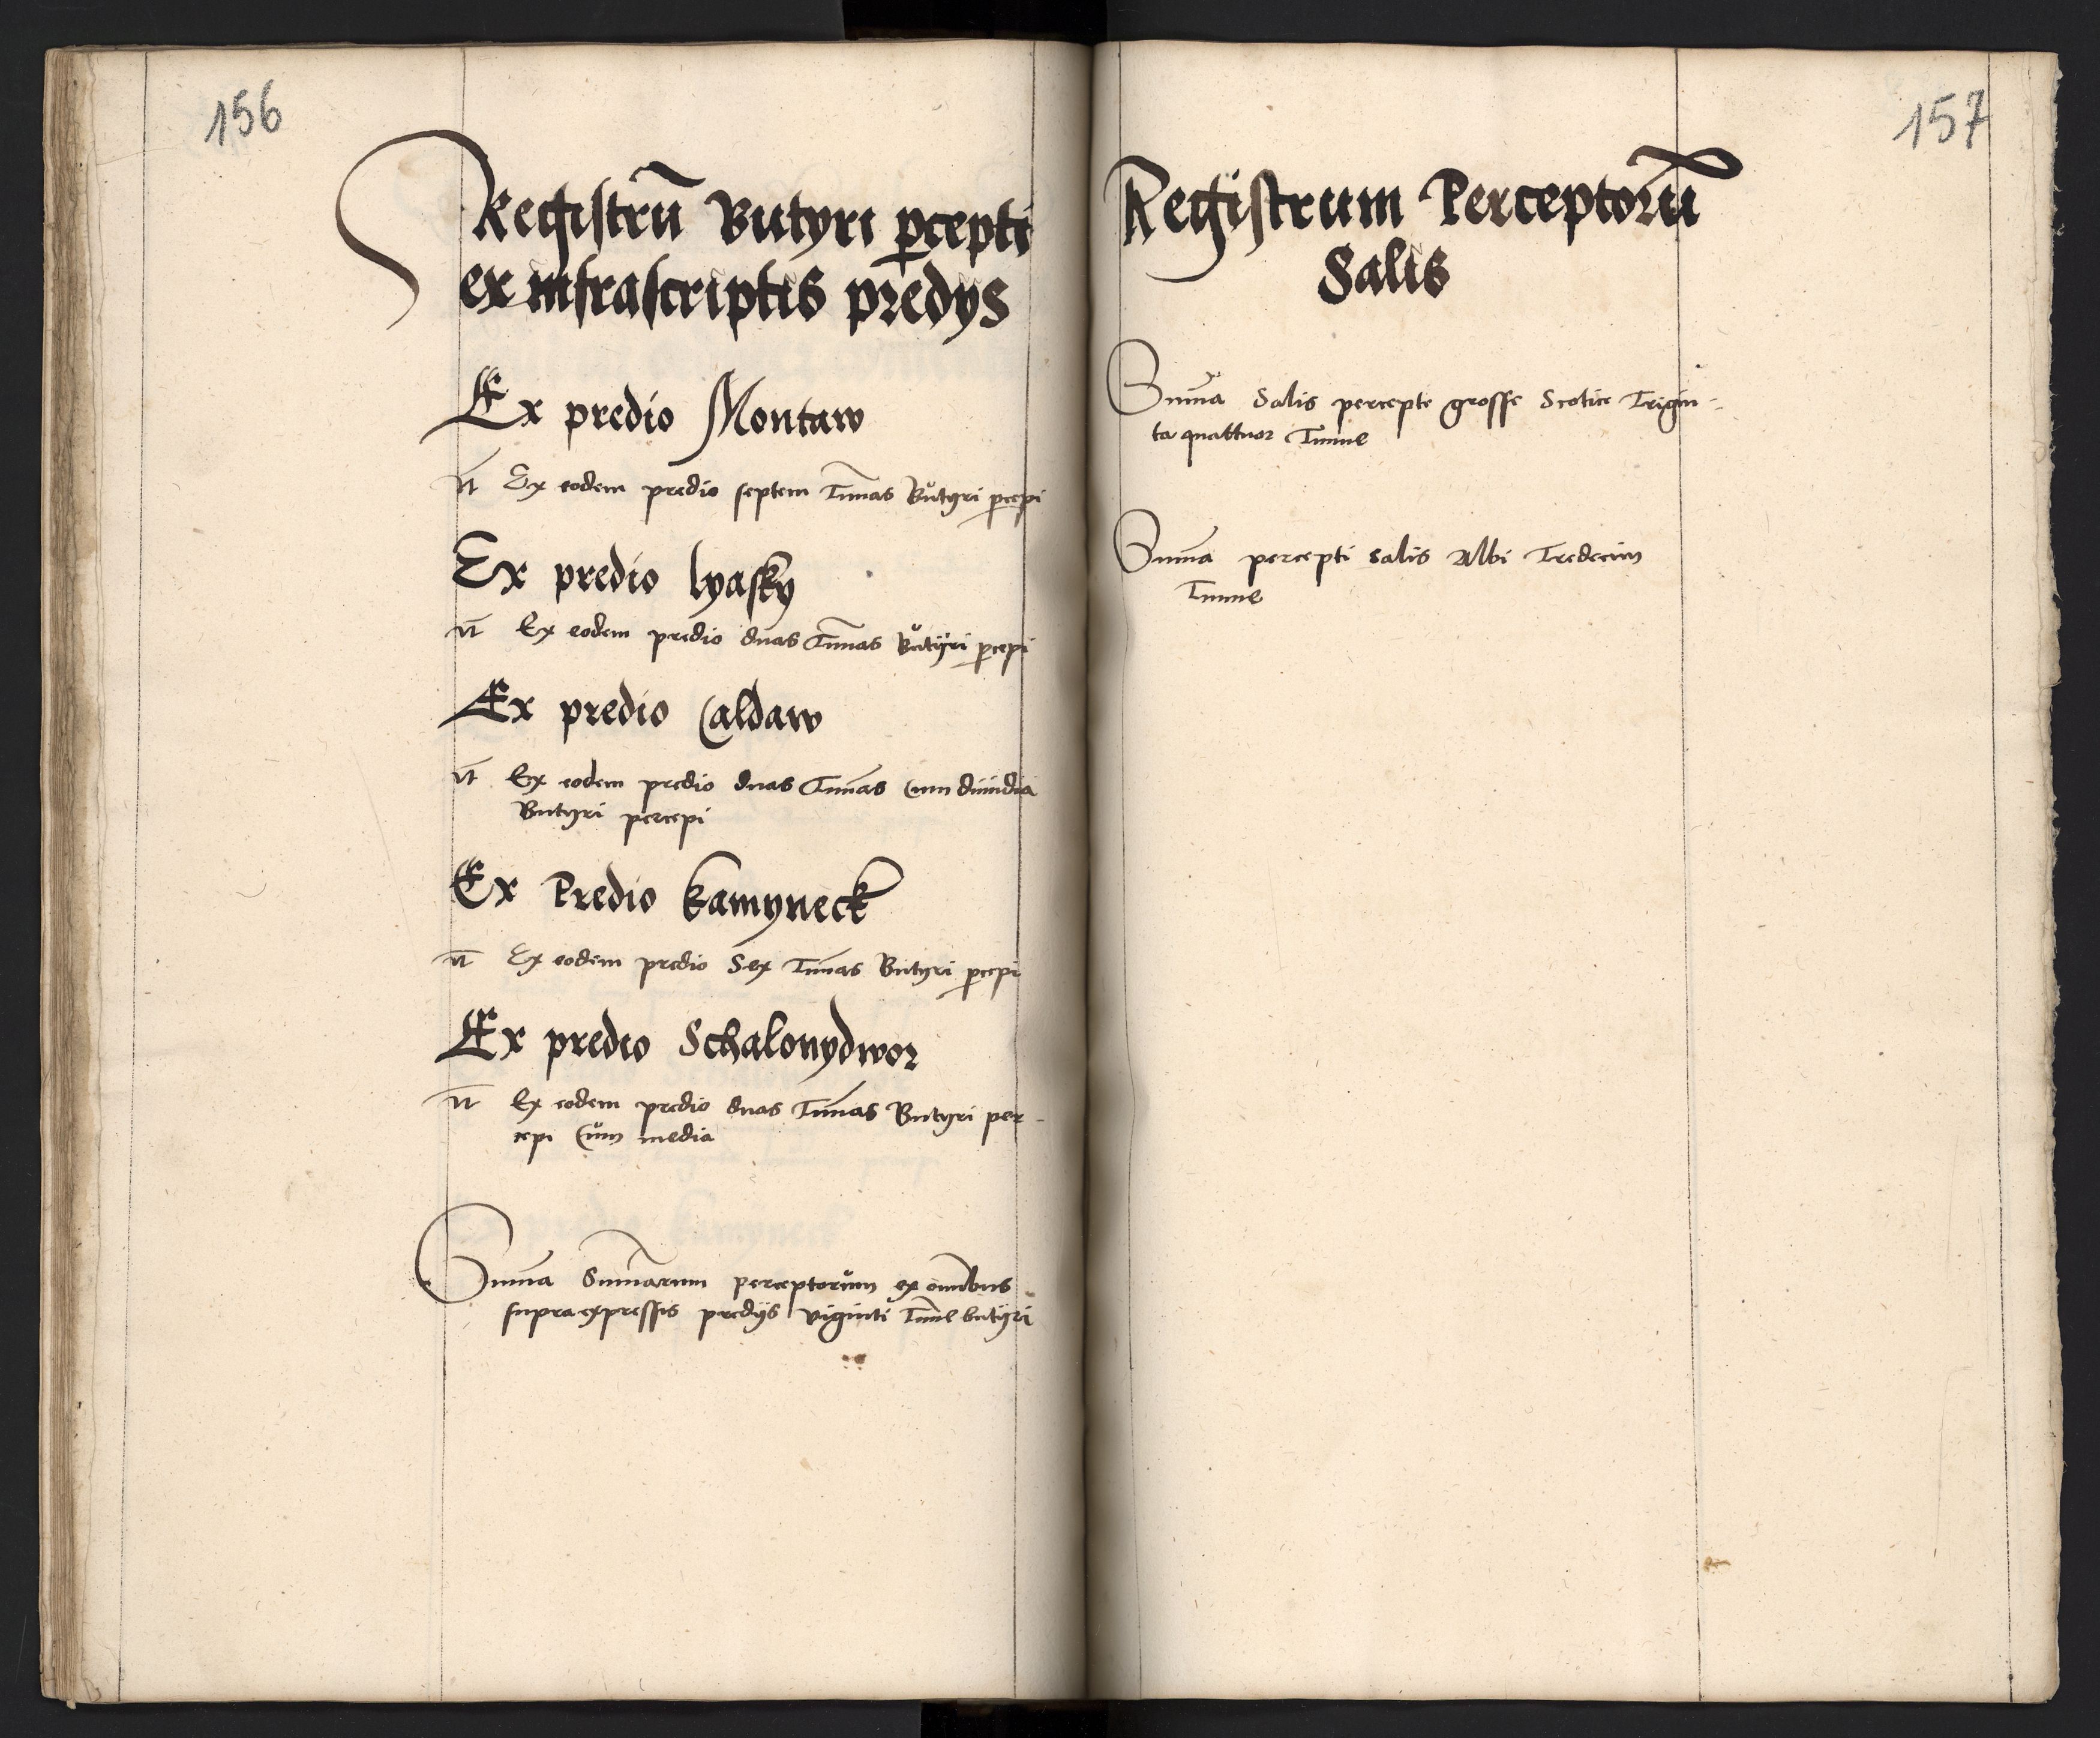 156
Registrū Butyri ꝑcepti
ex infrascriptis predys
Ex predio Montaw
It Ex eodem predio septem Tūnas Butyri ꝑcepi
Ex predio lyasky
It Ex eodem predio duas Tūnas Butÿri ꝑcepi
Ex predio Caldaw
It Ex eodem predio duas Tūnas Cum dimidia
Butyri percepi
Ex Predio kamyneck
It Ex eodem predio Sex Tūnas Butyri ꝑcepi
Ex predio Schalonydwor
It Ex eodem predio duas Tūnas Butyri per-
cepi Cum media
Sum̄a Sum̄arum perceptorum ex om̄ibus
supra expressis predÿs viginti Tūne butÿri
157
Registrum Perceptorū
Salis
Sum̄a Salis percepte grosse Scotice Trigin-
ta quattuor Tunne
Sum̄a percepti salis Albi Tredecim
Tunne